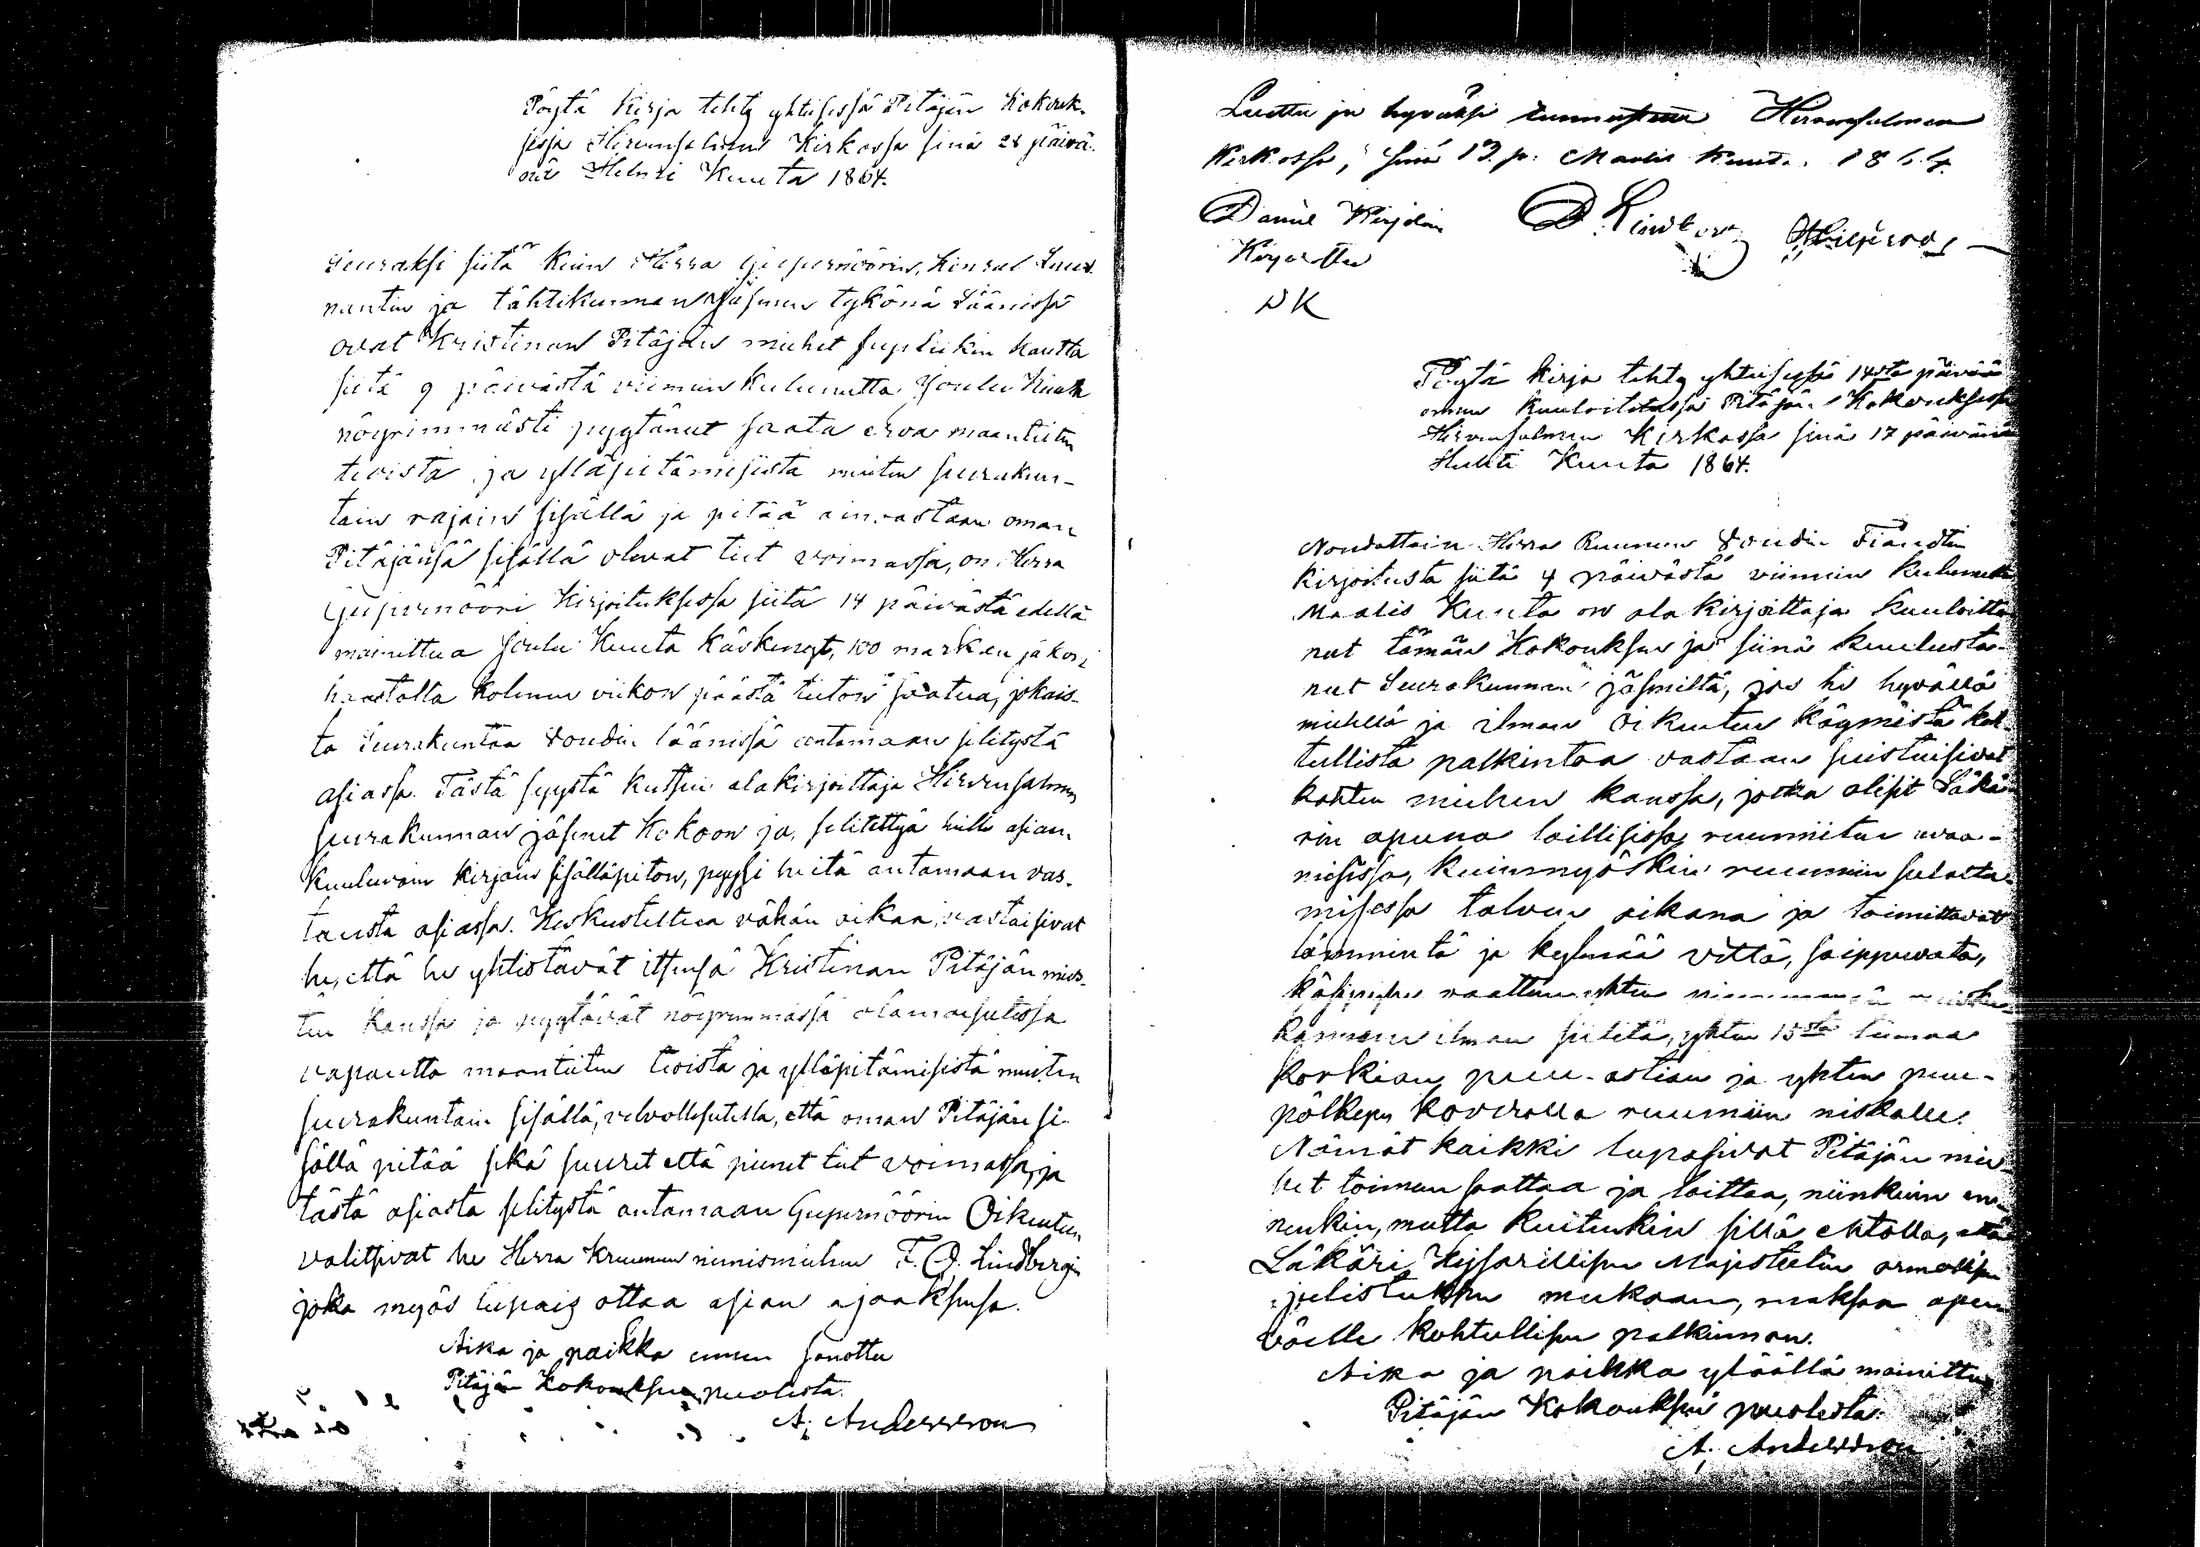 Pöytä Kirja tehty yhteisessä Pitäjän Kokouk-
sessa Hirvensalmen Kirkossa sinä 28 päivä-
nä Helmi Kuuta 1864.
Seuraksi siitä kuin Herra Gupernöörin, Kenral Luut-
nantin ja tähtikunnan Jäsenen tykönä Läänissä
ovat Kristinan Pitäjän miehet suplikin kautta
siitä 9 päivästä viimein kulunutta Joulu Kuuta
nöyrimmästi pyytänet saata eroa maantietein
teoista ja ylläpitämisistä muiten seurakun-
tain rajain sisällä ja pitää ainoastaan oman
Pitäjänsä sisällä olevat tiet voimassa, on Herra
Gupernööri Kirjoituksessa siitä 14 päivästä edellä
mainittua Joulu Kuuta käskenyt, 100 markan
haastolla kolmen viikon päästä tieton saatua, jokais-
ta Seurakuntaa Voudin läänissä antamaan selitystä
asiassa. Tästä syystä kutsui alakirjoittaja Hirvensalmen
seurakunnan jäsenet kokoon ja, selitettyä heille asian
kuuluvain kirjain sisälläpiton, pyysi heitä antamaan vas-
tausta asiassa. Keskusteltua vähän aikaa, vastaisivat
he, että he yhtistävät itsensä Kristinan Pitäjän mies-
ten kanssa ja pyytävät nöyrimmässä alamaisutessa
vapautta maantieten teoista ja ylläpitämisistä muiten
seurakuntain sisällä, velvollisutella, että oman Pitäjän si-
sällä pitää sekä suuret että pienet tiet voimassa, ja
tästä asiasta selitystä antamaan Gupernöörin Oikeuteen,
valitsivat he Herra Kruunun nimismiehen F. O. Lindbergin
joka myös lupais ottaa asian ajaaksensa.
Aika ja paikka ennen sanottu
Pitäjän Kokouksen puolesta.
A. Andersson
Luettu ja hyväksi tunnustettu Hirvensalmen
Kirkossa, sinä 13 p. Maalis Kuuta 1864.
Daniel Kirjolain
D. Lindberg
Kirjoittu
DK
Pöytä kirja tehty yhteisessä 14sta päivää
ennen kuuloitetussa Pitäjän Kokouksessa
Hirvensalmen Kirkossa sinä 17 päivänä
Huhti Kuuta 1864.
Noudattain Herra Ruunun Voudin Fiandtin
kirjoitusta siitä 4 päivästä viimein kulunutta
Maalis Kuuta on ala kirjoittaja kuuloitta-
nut tämän Kokouksen ja siinä kuulusta-
nut Seurakunnan jäsmiltä, jos he hyvällä
mielellä ja ilman oikeuten käymistä koh-
tullista palkintoa vastaan suistuisivat
kahten miehen kanssa, jotka olisit Läkä-
rin apuna laillisissa ruumiiten avaa-
misissa, kuinmyöskin ruumiin sulatta-
misessa talven aikana ja toimittavat
lämmintä ja kylmää vettä, saippuvata,
käsipyhe vaatteen yhten
kannen ilman siiletä, yhten 15sta tuumaa
korkian puu-astian ja yhten puu-
pölkyn koverolla ruumiin niskalle.
Nämät kaikki lupasivat Pitäjän mie-
het toimeen saattaa ja laittaa, niinkuin en-
nenkin, mutta kuitenkin sillä ehtolla, että
Läkäri Keisarillisen Majesteetin armollisen
julistuksen mukaan, maksaa apu
väelle kohtullisen palkinnon.
Aika ja paikka ylläällä mainittu
Pitäjän Kokouksen puolesta.
A. Andersson